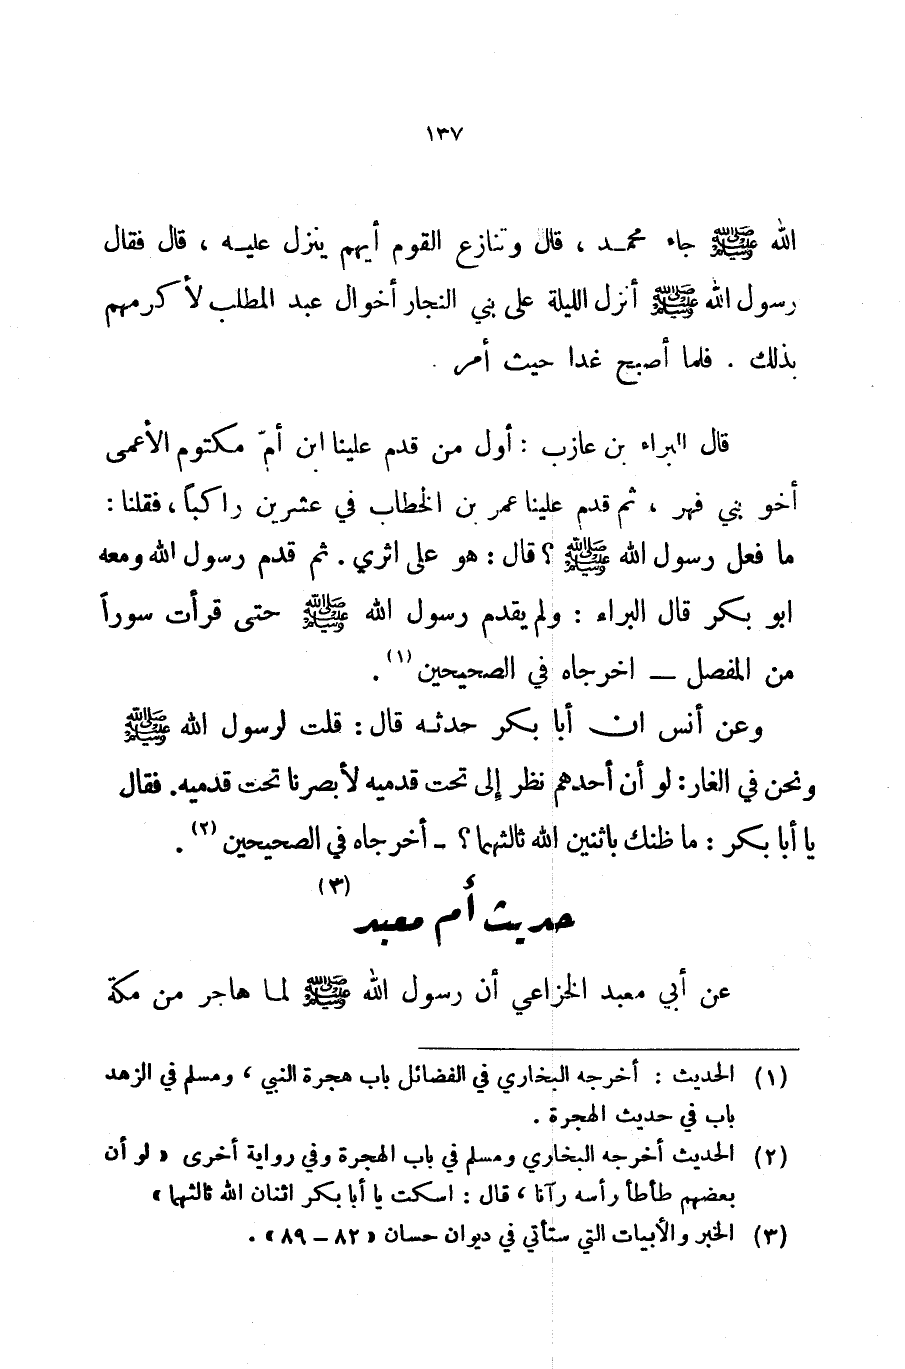 ١٣٧
الله ﷺ جاء محمد ، قال وتنازع القوم أيهم ينزل عليه ، قال فقال
رسول الله ﷺ أنزل الليلة على بني النجار أخوال عبد المطلب لأكرمهم
بذلك . فلما أصبح غدا حيث أمر .
قال البراء بن عازب : أول من قدم علينا ابن أمّ مكتوم الأعمى
أخو بني فهر ، ثم قدم علينا عمر بن الخطاب في عشرين راكباً ، فقلنا :
ما فعل رسول الله ﷺ ؟ قال : هو على اثري . ثم قدم رسول الله ومعه
ابو بكر قال البراء : ولم يقدم رسول الله ﷺ حتى قرأت سوراً
من المفصل — اخرجاه في الصحيحين (١) .
وعن أنس ان أبا بكر حدثه قال : قلت لرسول الله ﷺ
ونحن في الغار : لو أن أحدهم نظر إلى تحت قدميه لأبصرنا تحت قدميه . فقال
يا أبا بكر : ما ظنك باثنين الله ثالثهما ؟ - أخرجاه في الصحيحين (٢) .
حديث أم معبد (٣)
عن أبي معبد الخزاعي أن رسول الله ﷺ لما هاجر من مكة
(١) الحديث : أخرجه البخاري في الفضائل باب هجرة النبي ، ومسلم في الزهد
باب في حديث الهجرة .
(٢) الحديث أخرجه البخاري ومسلم في باب الهجرة وفي رواية أخرى « لو أن
بعضهم طأطأ رأسه رآنا ، قال : اسكت يا أبا بكر اثنان الله ثالثهما »
(٣) الخبر والأبيات التي ستأتي في ديوان حسان « ٨٢ – ٨٩ » .